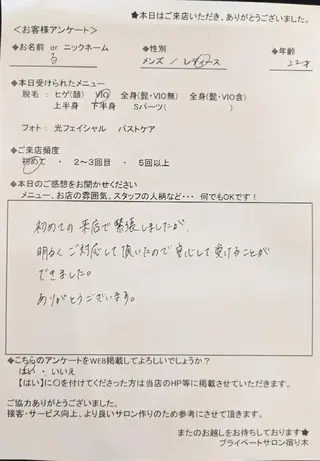 ★本日はご来店いただき、ありがとうございました。
＜お客様アンケート＞
◆お名前 or ニックネーム
る
◆性別
メンズ / レディース
◆年齢
22才
◆本日受けられたメニュー
脱毛：ヒゲ(顔) VIO 全身(髭・VIO無) 全身(髭・VIO含)
上半身 下半身 Sパーツ( )
フォト：光フェイシャル バストケア
◆ご来店頻度
初めて ・ 2～3回目 ・ 5回以上
◆本日のご感想をお聞かせください
メニュー、お店の雰囲気、スタッフの人柄など・・・ 何でもOKです！
初めての来店で緊張しましたが、
明るくご対応して頂いたので安心して受けることが
できました。
ありがとうございます。
◆こちらのアンケートをWEB掲載してよろしいでしょうか？
はい ・ いいえ
【はい】に○を付けてくださった方は当店のHP等に掲載させていただきます。
ご協力ありがとうございました。
接客・サービス向上、より良いサロン作りのため参考にさせて頂きます。
またのお越しをお待ちしております★
プライベートサロン宿り木